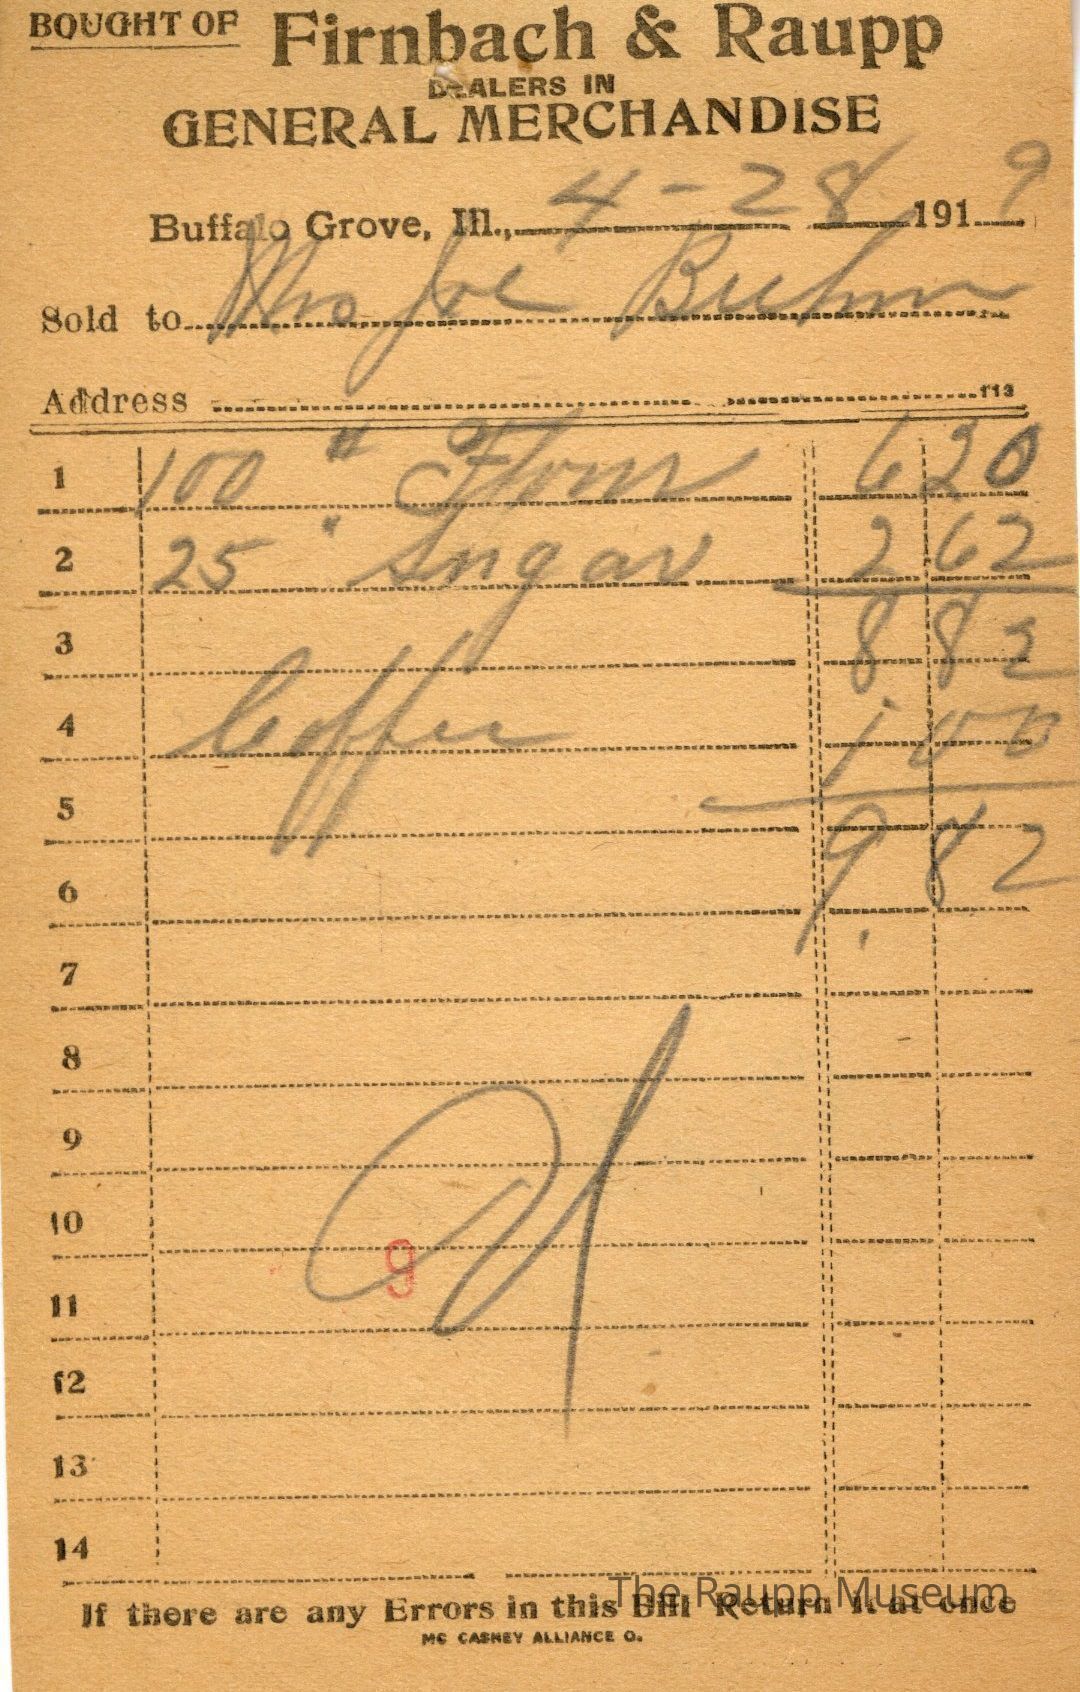 BOUGHT OF Firnbach & Raupp
DEALERS IN
GENERAL MERCHANDISE
Buffalo Grove, Ill., 4-28 1919
Sold to Mrs Joe Buhm
Address 113
1 100 # Flour 6 20
2 25 " Sugar 2 62
3 8 82
4 Coffee 1 00
5 9.82
6
7
8
9
10
9
11
12
13
14
The Raupp Museum
If there are any Errors in this Bill Return it at once
MC CASKEY ALLIANCE O.